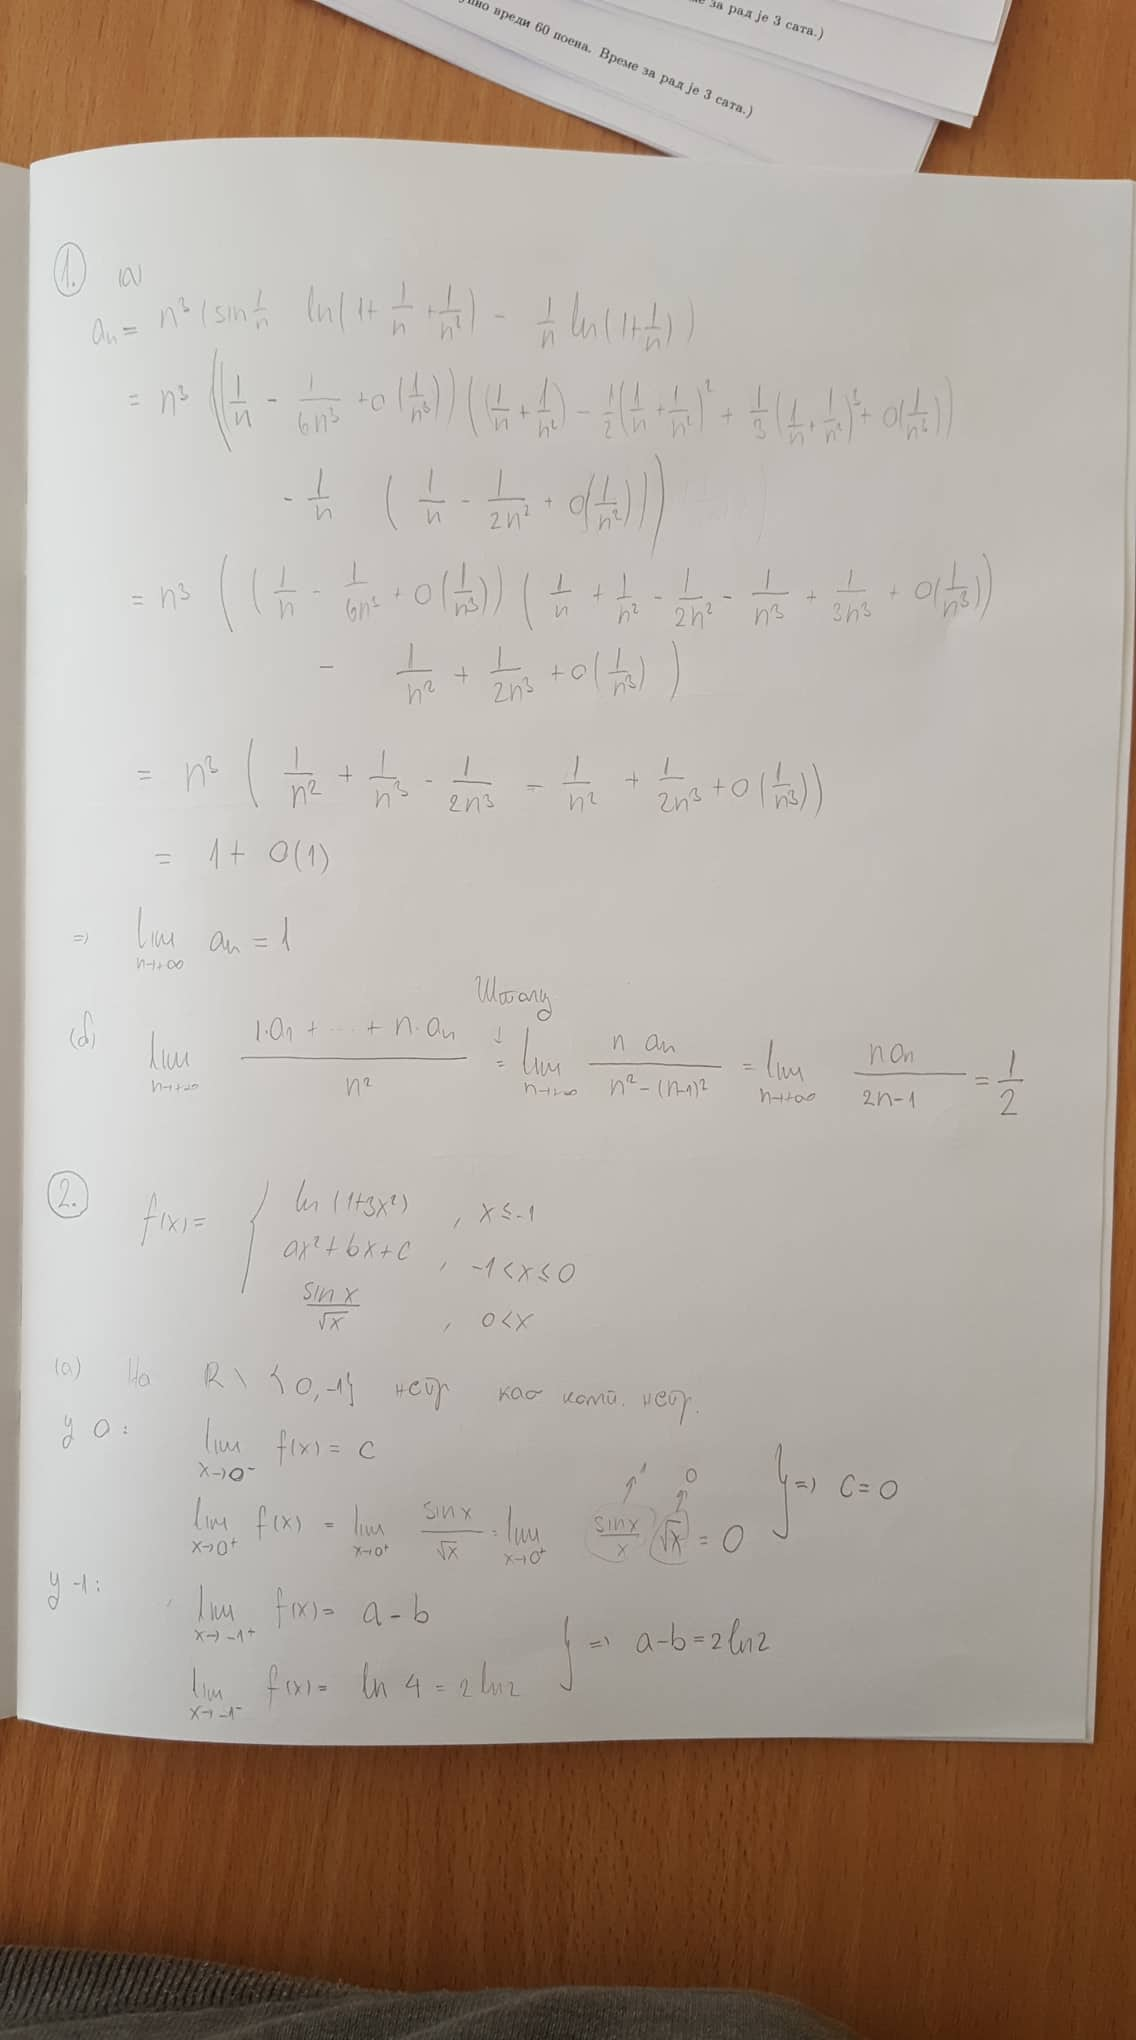 е за рад је 3 сата.)
пно вреди 60 поена. Време за рад је 3 сата.)
1. (a)
aₙ = n³ (sin 1/n ln(1 + 1/n + 1/n²) - 1/n ln(1 + 1/n))
= n³ ((1/n - 1/6n³ + o(1/n³)) ((1/n + 1/n²) - 1/2 (1/n + 1/n²)² + 1/3 (1/n + 1/n²)³ + o(1/n³))
- 1/n (1/n - 1/2n² + o(1/n²)))
= n³ ((1/n - 1/6n³ + o(1/n³)) (1/n + 1/n² - 1/2n² - 1/n³ + 1/3n³ + o(1/n³))
- 1/n² + 1/2n³ + o(1/n³))
= n³ (1/n² + 1/n³ - 1/2n³ - 1/n² + 1/2n³ + o(1/n³))
= 1 + o(1)
=> lim n→+∞ aₙ = 1
Штолц
(б) lim n→+∞ (1·a₁ + ... + n·aₙ)/n² = lim n→+∞ n aₙ/(n² - (n-1)²) = lim n→+∞ n aₙ/(2n-1) = 1/2
2. f(x) = { ln(1+3x²) , x ≤ -1
ax² + bx + c , -1 < x ≤ 0
sin x/√x , 0 < x
(a) На R \ {0, -1} непр као комп. непр.
у 0: lim x→0⁻ f(x) = c
lim x→0⁺ f(x) = lim x→0⁺ sin x/√x = lim x→0⁺ sin x/x √x = 0 } => c = 0
↗1 ↗0
у -1: lim x→-1⁺ f(x) = a - b
lim x→-1⁻ f(x) = ln 4 = 2 ln2 } => a - b = 2 ln2